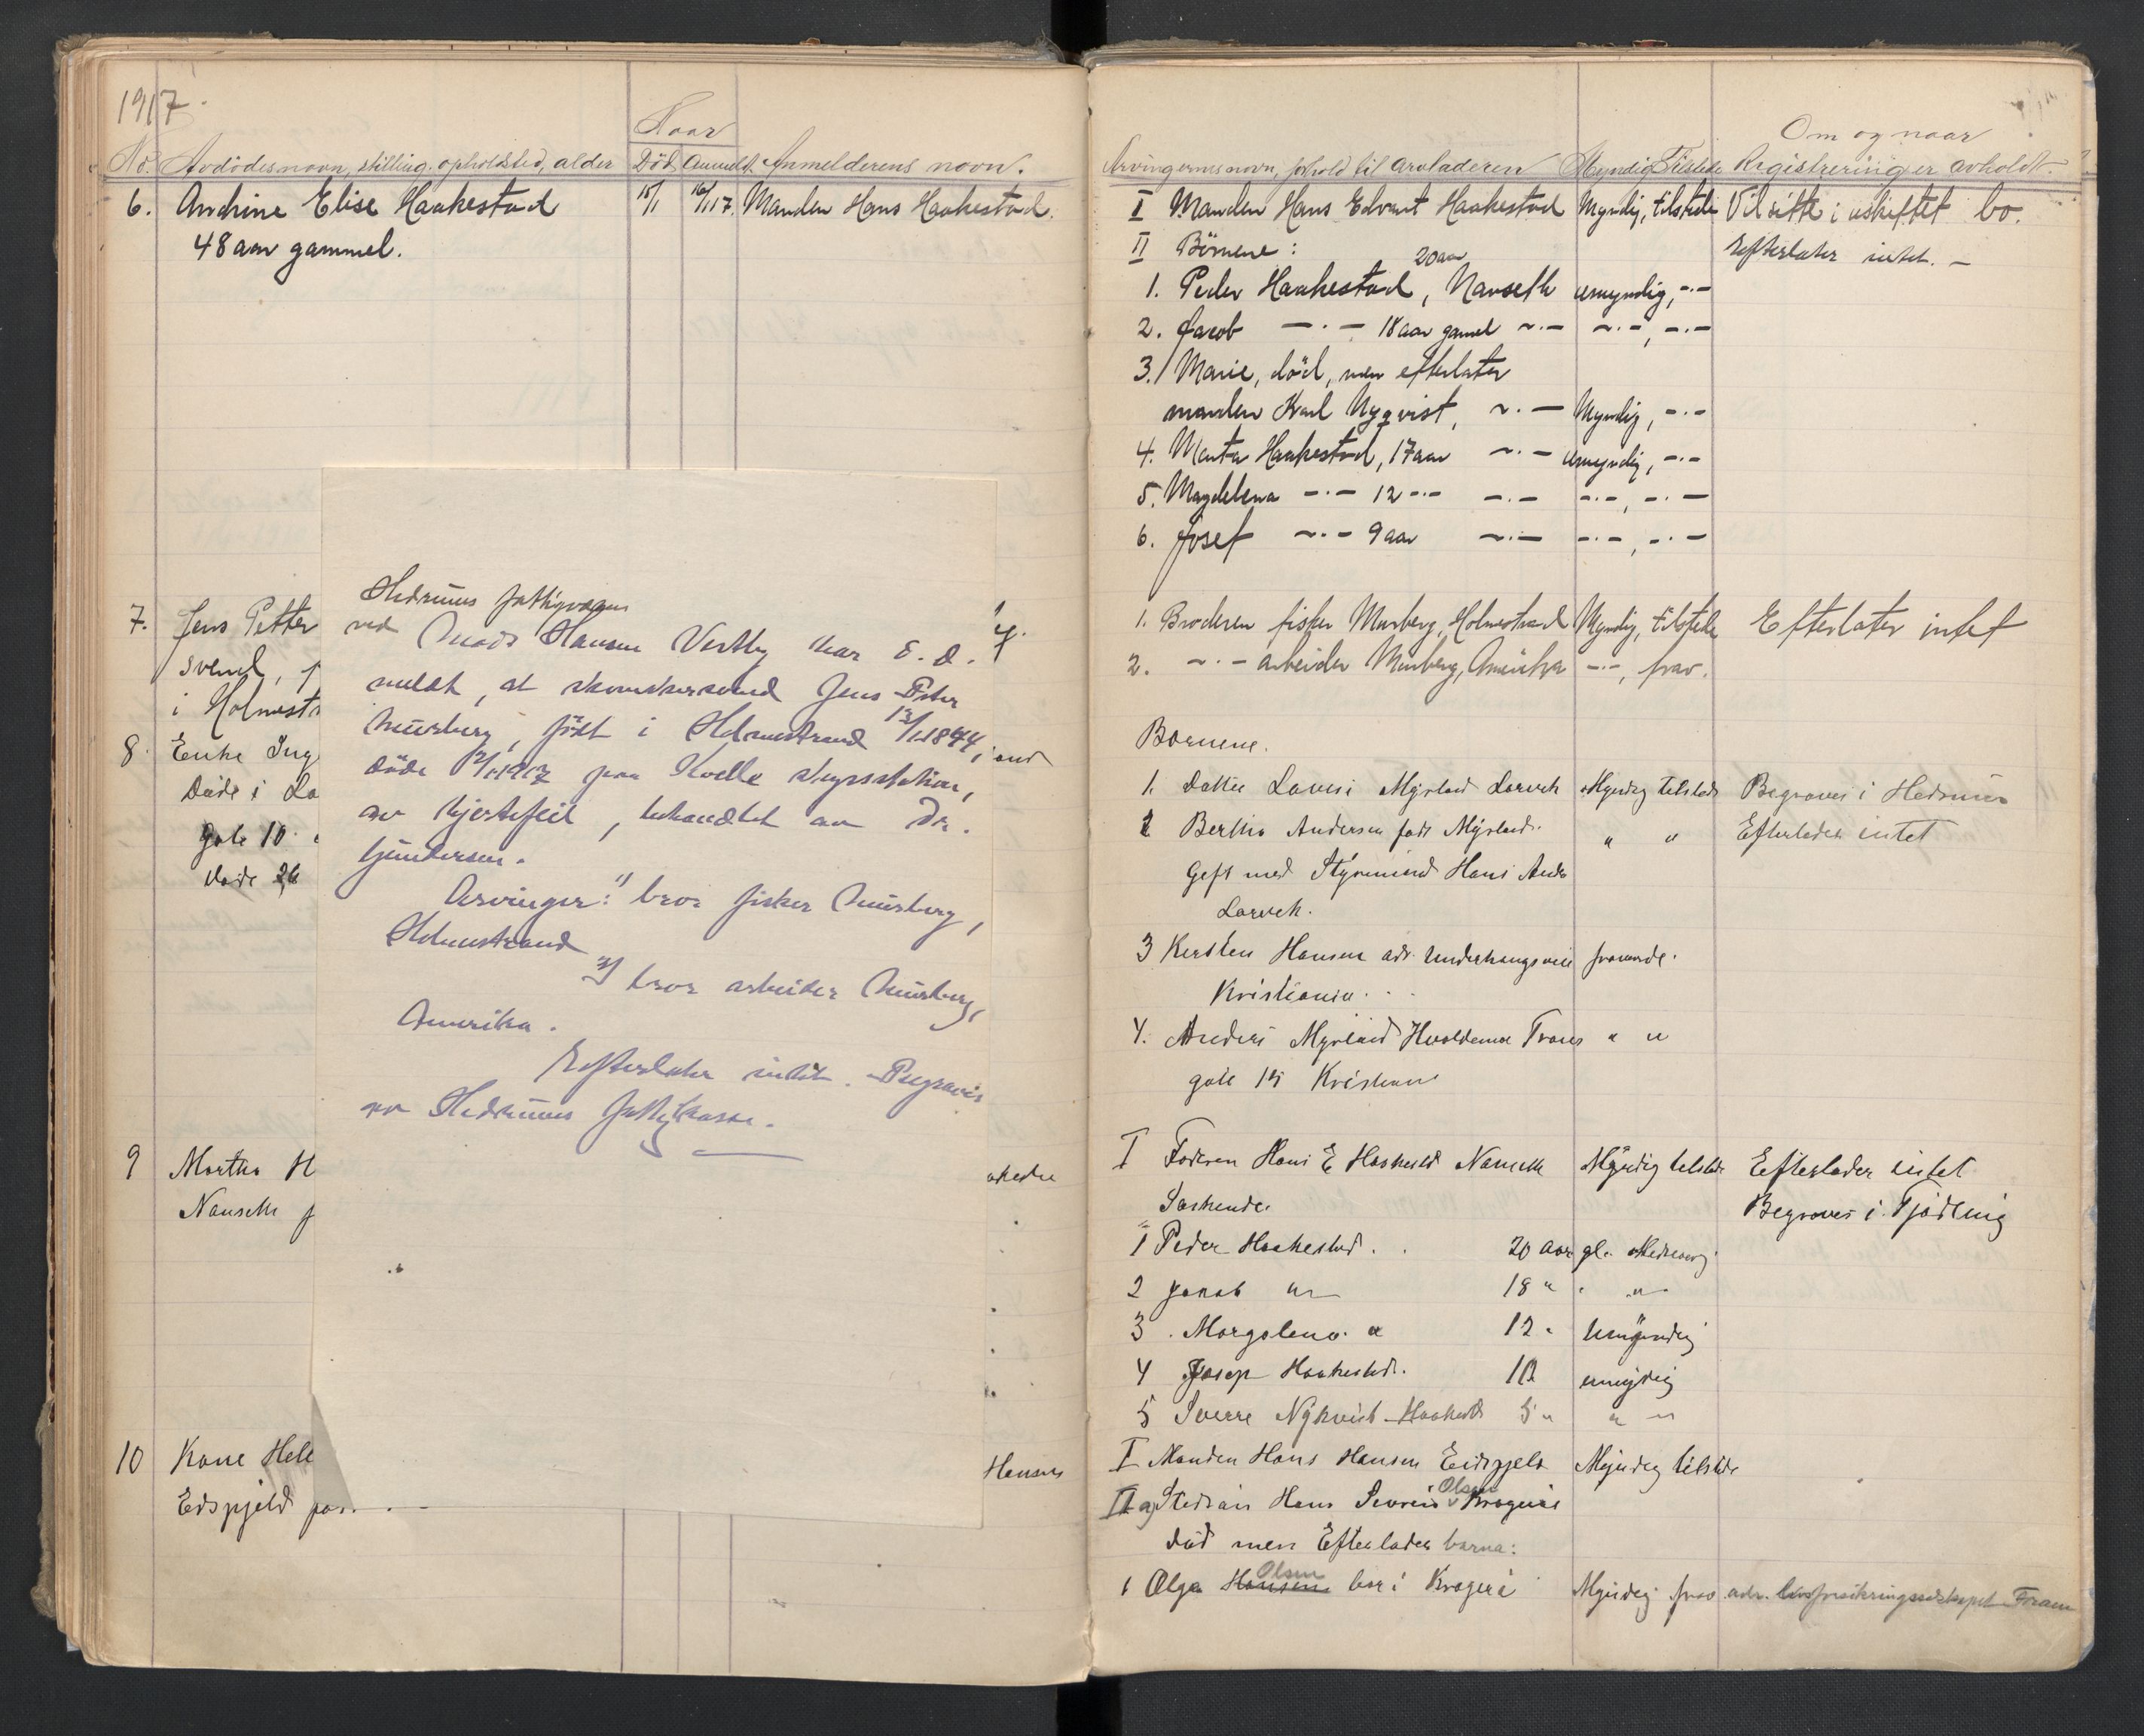 1917.
Naar
No. Avdödes navn, stilling, opholdsted, alder Död Anmeldt Anmelderens navn.
6. Andrine Elise Haakestad 15/1 16/1 17. Manden Hans Haakestad.
48 aar gammel.
7. Jens Petter
svend,
i Holmestr
8. Enke Ing
Döde i La
gate 10
döde 26
9 Martha H
Nanseth f
10 Kone Hele
Eidspjeld
Hansen
Hedrums fattigvæsen
ved Mads Hansen Vestby har E. D.
meldt, at skomakersvend Jens Peter
Mürsberg, født i Holmestrand 13/1 1844,
døde 12/1 1917 paa Kvelle sykestation,
av hjertefeil, behandlet av Dr.
Gundersen.
Arvinger: 1) bror fisker Mürsberg,
Holmestrand
2) bror arbeider Mürsberg,
Amerika.
Efterlater intet. Begraves
av Hedrums fattigkasse.
Om og naar
Arvingernes navn, forhold til arveladeren Myndig Tilstede Registreringer avholdt.
I Manden Hans Edvart Haakestad Myndig, tilstede Vil sitte i uskiftet bo.
II Börnene: Efterlater intet. —
20 aar
1. Peder Haakestad, Nanseth umyndig, -·-
2. Jacob —·— 18 aar gamel ~·— ~·—, —·—
3./ Marie, död, men efterlater
manden Karl Nyqvist, ~·— Myndig, -·-
4. Marta Haakestad, 17 aar ~·— umyndig, -·-
5. Magdelena -·- 12 -·- -·- -·-, -·-
6. Josef ~·- 9 aar ~·— -·-, -·-
1. Broderen fisker Mursberg, Holmestrand Myndig, tilstede Efterlater intet
2. ~·- arbeider Mursberg, Amerika -·-, frav.
Boernene.
1. Datter Lovise Myrland Larvik Myndig tilstede Begraves i Hedrum
2 Bertha Andersen født Myrland. " " Efterlader intet
Gift med Styrmand Hans Ander
Larvik.
3 Kersten Hansen adr. Underhaugsveien fravende.
Kristiania.
4. Anders Myrland Tranes " "
gate 15 Kristian
I Faderen Hans E Haakestad Nanseth Myndig tilstede Eefterlader intet
Søskende. Begraves i Tjödling
1 Peder Haakestad. 20 aar gl.
2 Jakob " 18 " "
3. Margalena " 12 " Umyndig
4 Josep Haakestad. 10 umyndig
5 Sverre Nykvist Haakestad 5 " " "
I Manden Hans Hansen Eidspjeld Myndig tilstede
II a) Stedsøn Hans Severin Olsen Kragerø
död men Efterlader barna:
1 Olga Hansen Olsen bor i Kragerø Myndig frav. adr. livsforsikringsselskapet Fram